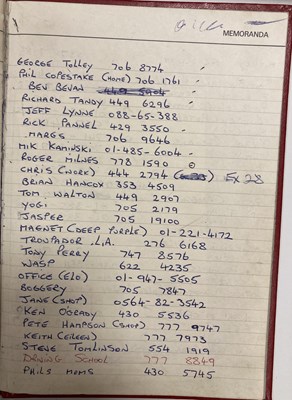 MEMORANDA
GEORGE TOLLEY 706 8774
PHIL COPESTAKE (HOME) 706 1761
BEV BEVAN 449 5904
RICHARD TANDY 449 6296
JEFF LYNNE 088-65-388
RICK PANNEL 429 3550
MARGS 706 9646
MIK KAMINSKI 01-485-6004
ROGER MILNES 778 1590
CHRIS (WORK) 444 2794 EX 28
BRIAN HANCOX 353 4509
TOM WALTON 449 2907
YOGI 705 2179
JASPER 705 19100
MAGNET (DEEP PURPLE) 01-221-4172
TROUPADOR L.A. 276 6168
TONY PERRY 747 8576
WASP 622 4235
OFFICE (ELO) 01-947-5505
BOGGERY 705 7847
JANE (SHOP) 0564-82-3542
KEN O'GRADY 430 5536
PETE HAMPSON (SHOP) 777 9747
KEITH (EILEEN) 777 7973
STEVE TOMLINSON 554 1919
DRIVING SCHOOL 777 8849
PHILS MUMS 430 5745